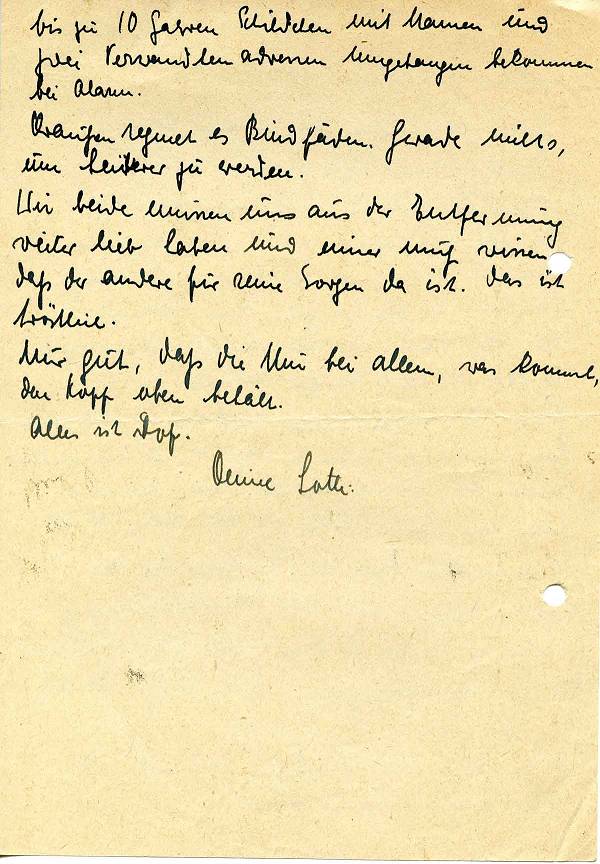 bis zu 10 Jahren Schildchen mit Namen und
zwei Verwandtenadressen umgehangen bekommen
bei Alarm.
Draußen regnet es Bindfäden. Gerade nichts,
um heiterer zu werden.
Wir beide müssen uns aus der Entfernung
weiter lieb haben und einer muß wissen
daß der andere für seine Sorgen da ist. Das ist
tröstlich.
Nur gut, daß die Mui bei allem, was kommt,
den Kopf oben behält.
Alles ist doof.
Deine